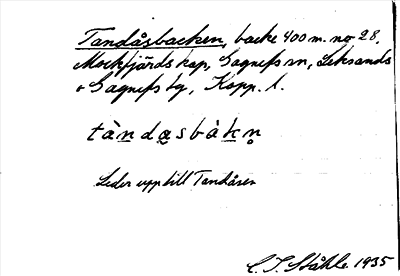 Tandåsbacken, backe 400 m. no 28,
Mockfjärds kap, Sagnefs sn, Leksands
o Gagnefs tg, Kopp. l.
tàn̲da̮sbàk̲n̥
Leder upp till Tandåsen
C. I. Ståhle 1935